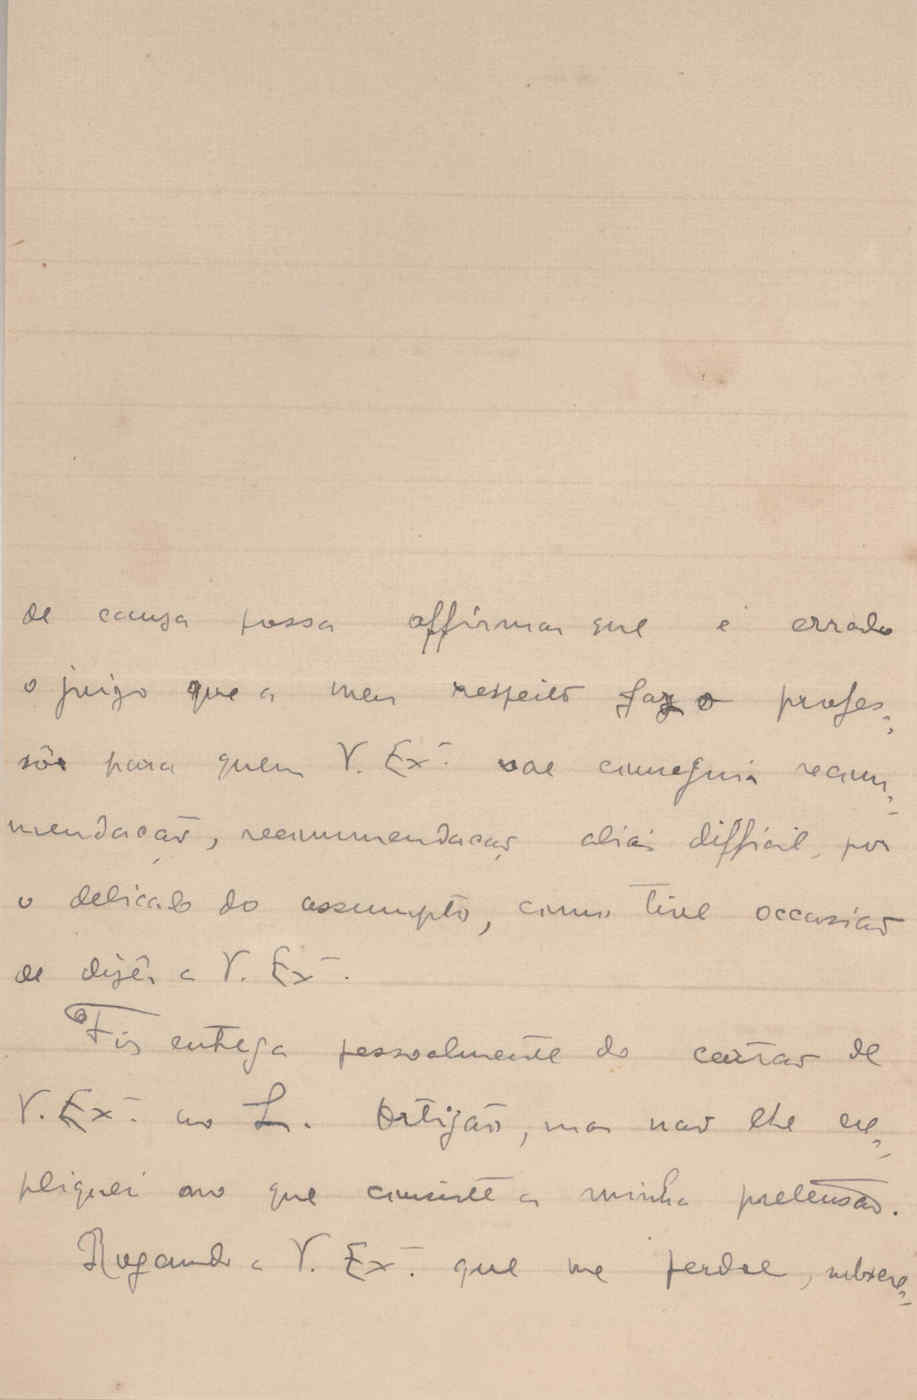 de causa possa affirmar que é errado
o juizo que a meu respeito faz o profes=
sôr para quem V. Exª. vae conseguir recom=
mendação, recommendação aliás difficil, por
o delicado do assumpto, como tive occasião
de dizêr a V. Exª.
Fiz entrega pessoalmente do cartão de
V. Exª. ao Sr. Ortigão, mas não lhe ex=
pliquei no que consiste a minha pretensão.
Rogando a V. Exª. que me perdoe, subscre=